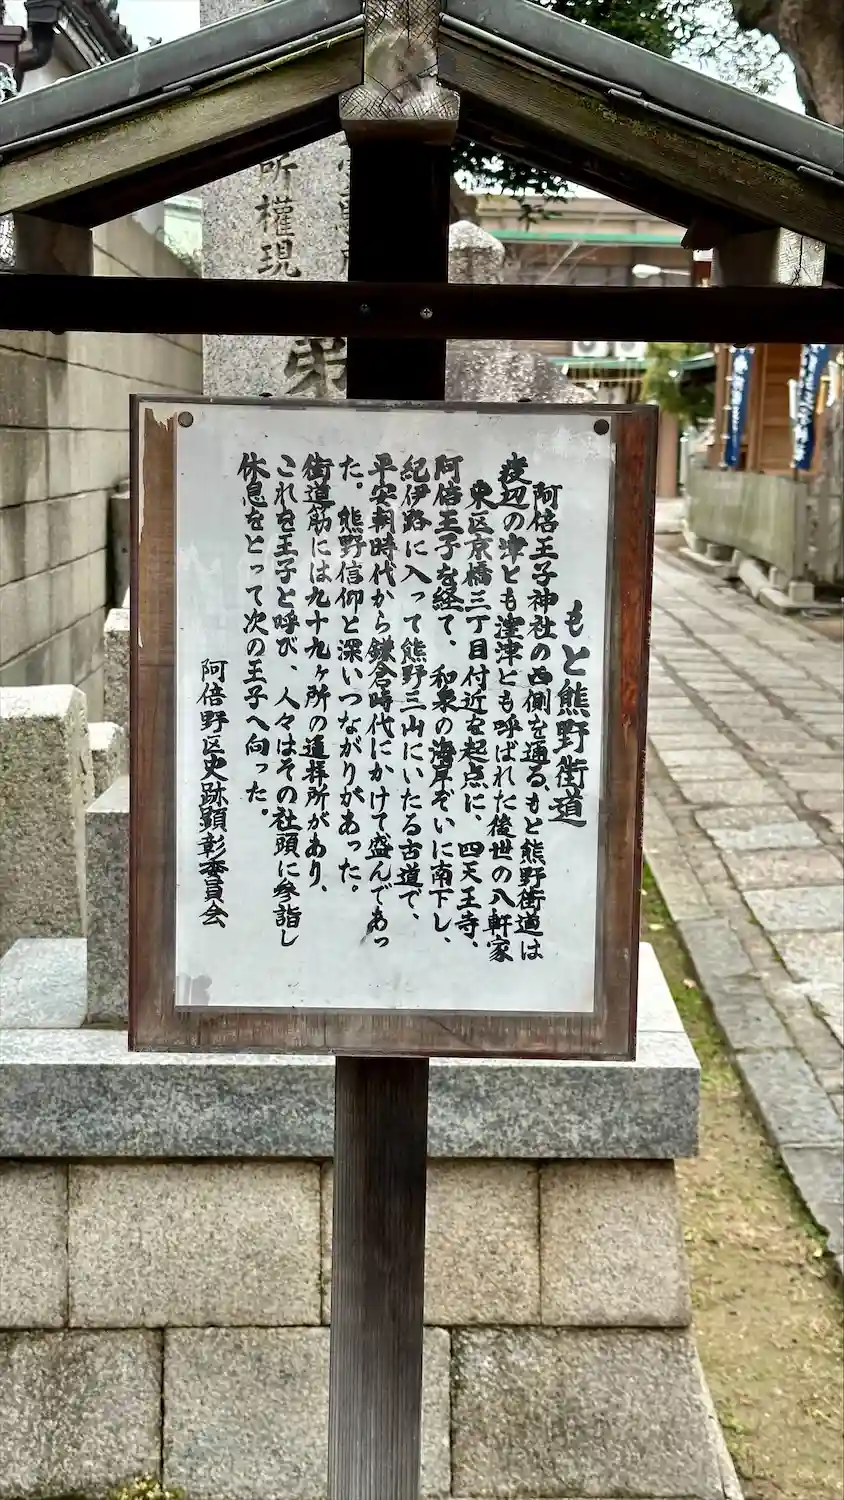 もと熊野街道
阿倍王子神社の西側を通る、もと熊野街道は
渡辺の津とも窪津とも呼ばれた後世の八軒家
東区京橋三丁目付近を起点に、四天王寺、
阿倍王子を経て、和泉の海岸ぞいに南下し、
紀伊路に入って熊野三山にいたる古道で、
平安朝時代から鎌倉時代にかけて盛んであっ
た。熊野信仰と深いつながりがあった。
街道筋には九十九ヶ所の遥拝所があり、
これを王子と呼び、人々はその社頭に参詣し
休息をとって次の王子へ向った。
阿倍野区史跡顕彰委員会
所權現
第